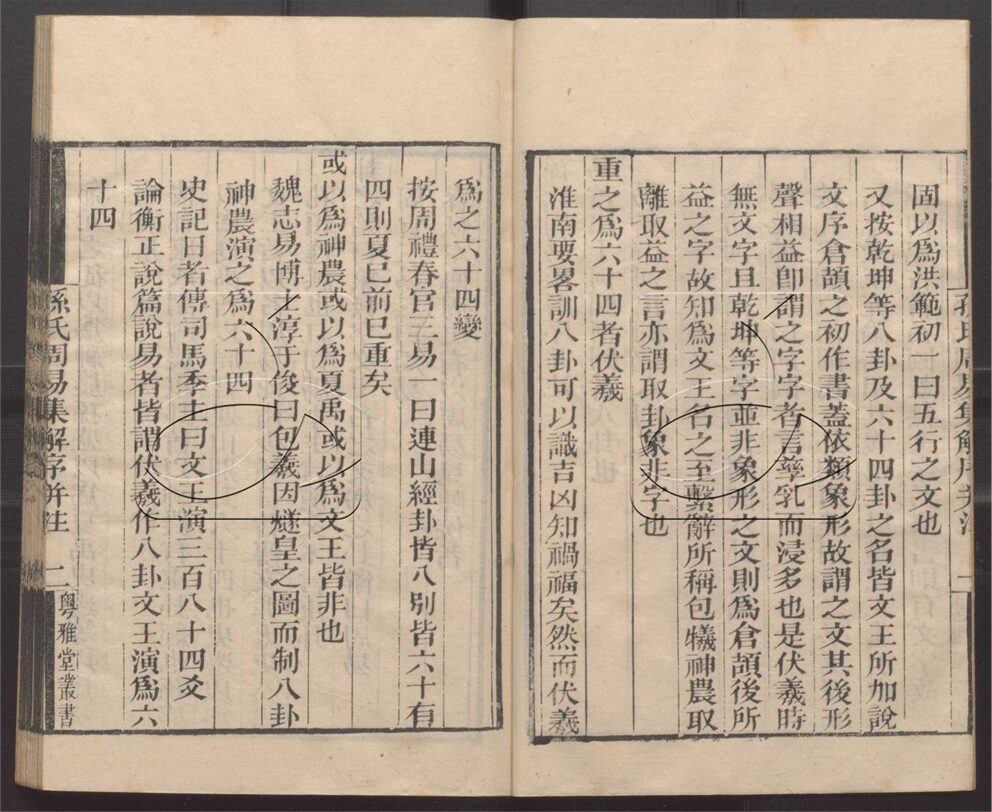 固以爲洪範初一曰五行之文也
又按乾坤等八卦及六十四卦之名皆文王所加說
文序倉頡之初作書葢依類象形故謂之文其後形
聲相益卽謂之字字者言孳乳而浸多也是伏羲時
無文字且乾坤等字並非象形之文則爲倉頡後所
益之字故知爲文王名之至繫辭所稱包犧神農取
離取益之言亦謂取卦象非字也
重之爲六十四者伏羲
淮南要畧訓八卦可以識吉凶知禍福矣然而伏羲
爲之六十四變
按周禮春官三易一曰連山經卦皆八別皆六十有
四則夏已前已重矣
或以爲神農或以爲夏禹或以爲文王皆非也
魏志易博士淳于俊曰包羲因燧皇之圖而制八卦
神農演之爲六十四
史記日者傳司馬季主曰文王演三百八十四爻
論衡正說篇說易者皆謂伏羲作八卦文王演爲六
十四
孫氏周易集解序并注 二 粵雅堂叢書